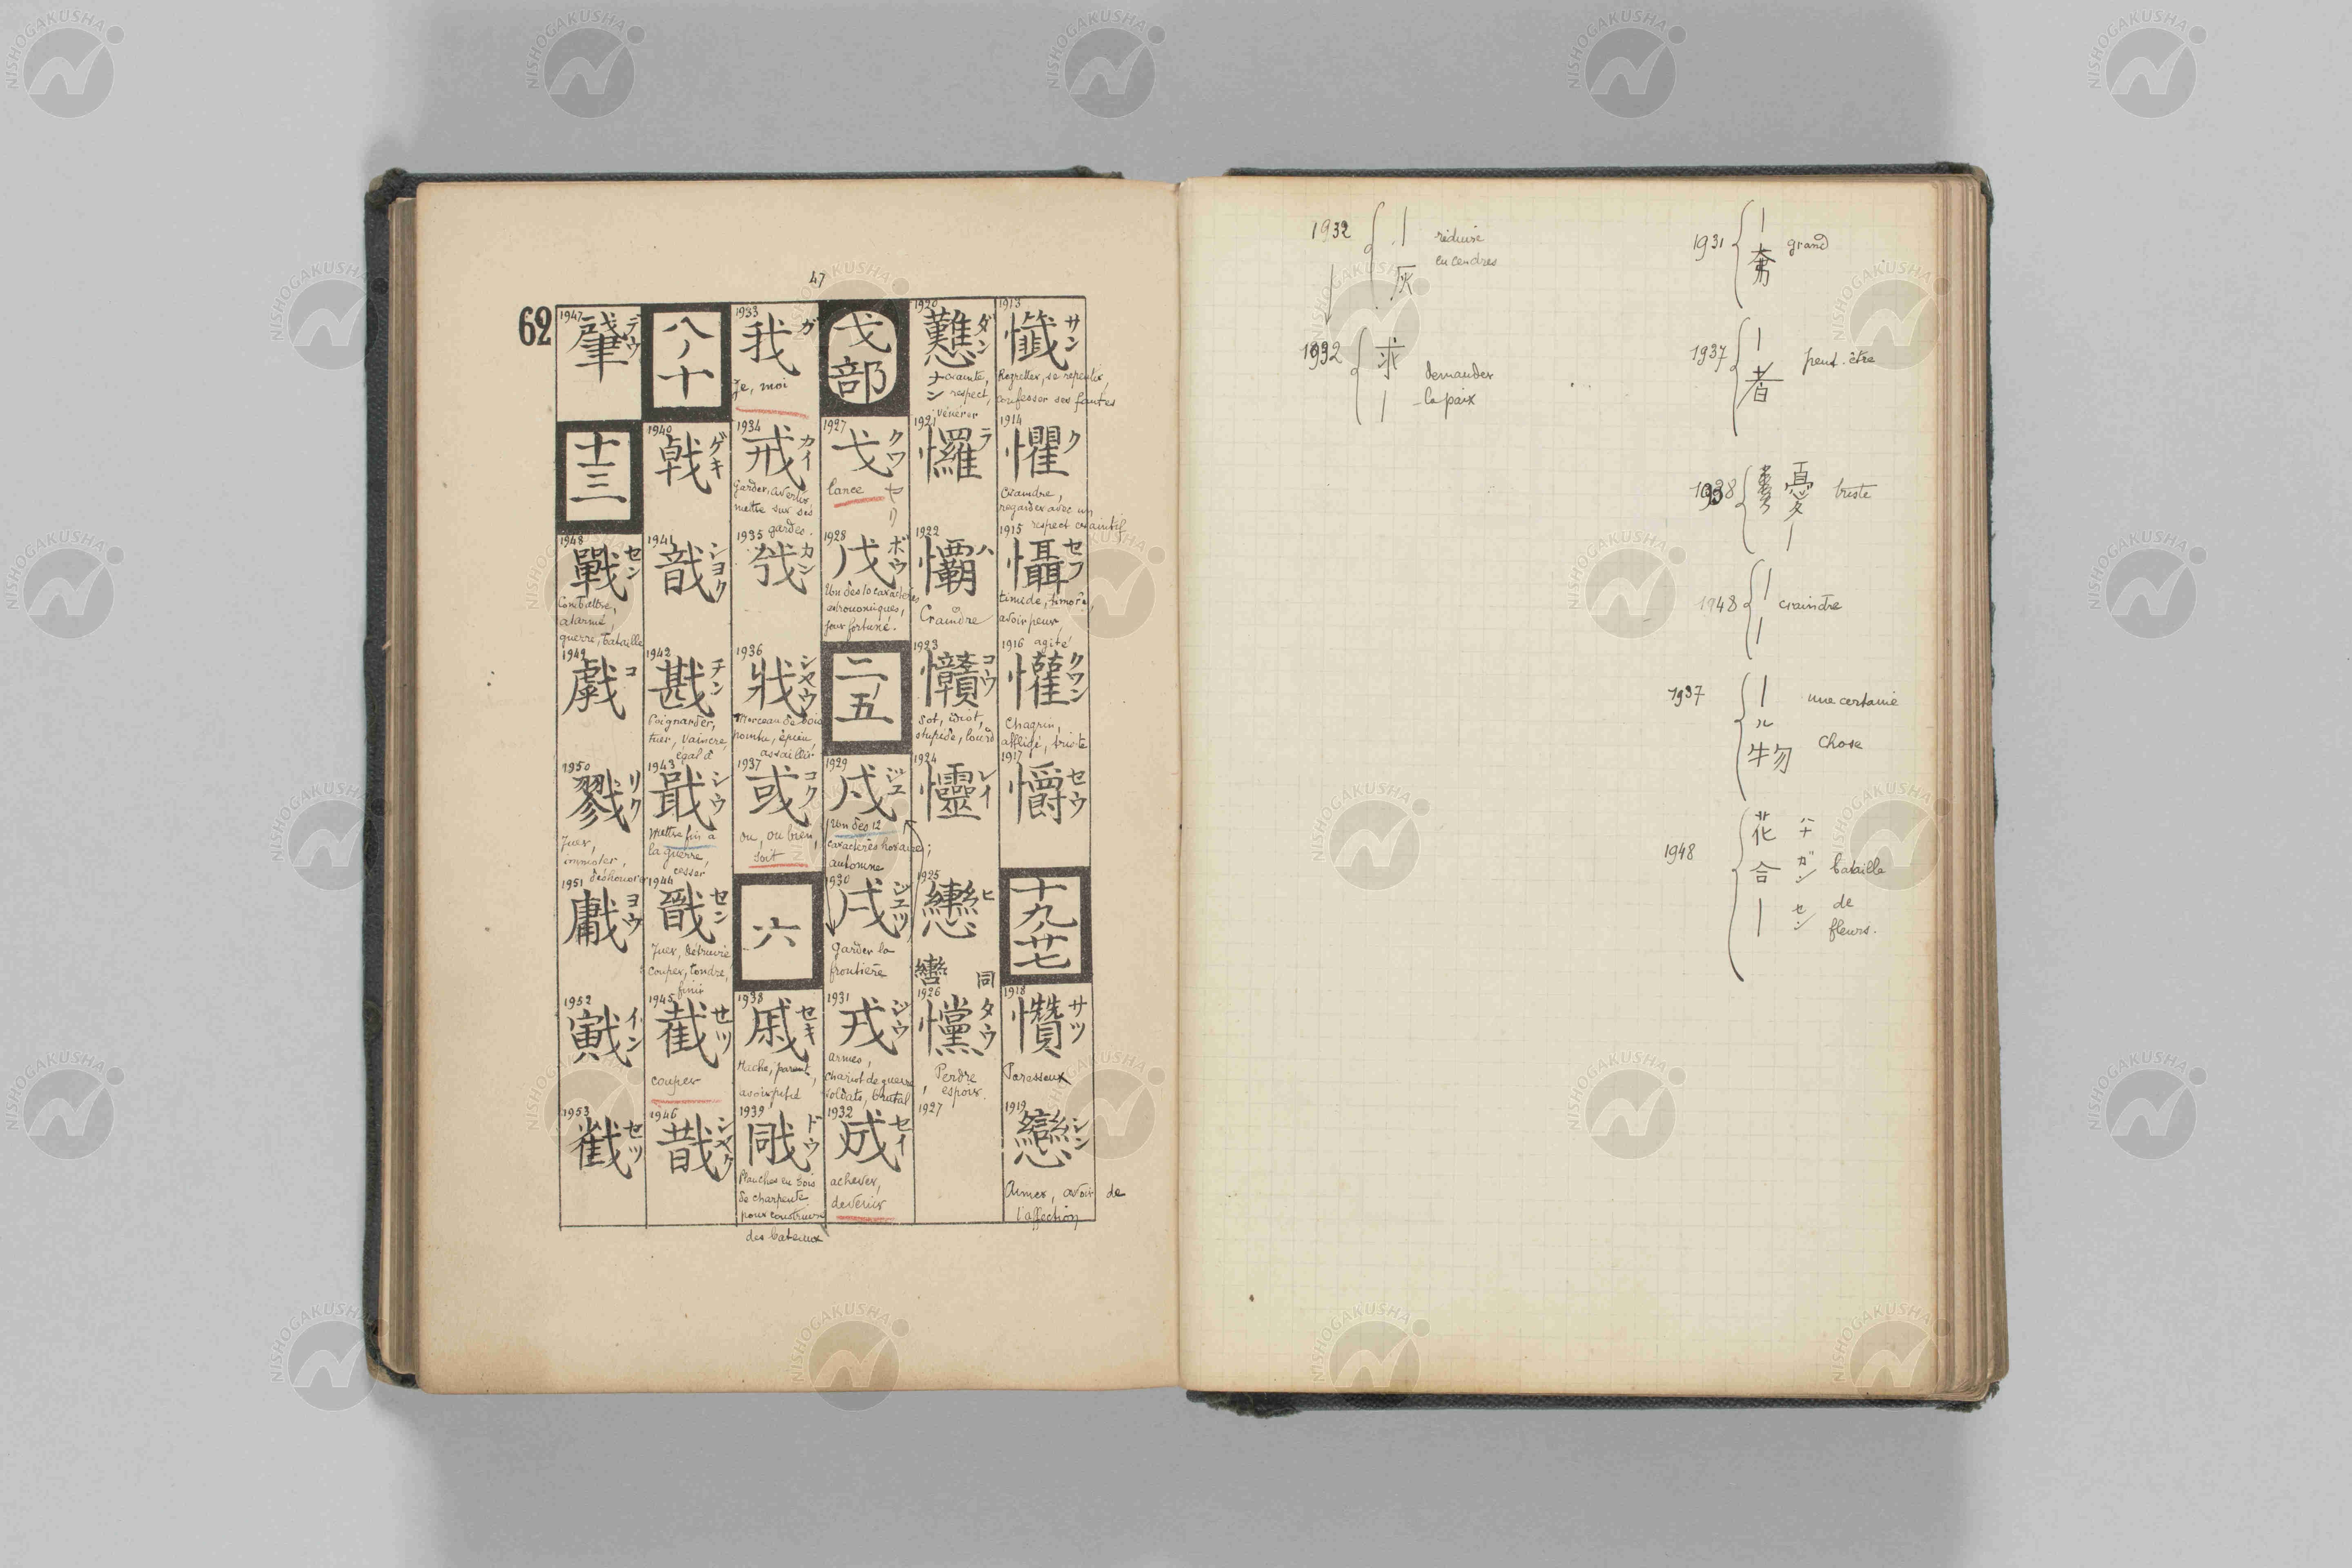 47
62
1913
懺
サン
Regretter, se repentir,
confesser ses fautes
1914
懼
ク
Craindre,
regarder avec un
respect craintif
1915
懾
セフ
timide, timoré,
avoir peur
agité
1916
懽
クワン
Chagrin,
affligé, triste
1917
懤
セウ
十九廿七
1918
懫
サツ
Paresseux
1919
戀
シン
Aimer, avoir de
l'affection
1920
戁
ダン
ナン
crainte,
respect,
vénérer
1921
儸
ラ
1922
欛
ハ
Craindre
1923
戇
コウ
Sot, idiot,
stupide, lourd
1924
レイ
1925
ヒ
同
1926
戃
タウ
Perdre
espoir.
1927
戈部
1927
戈
クワ
ヤリ
lance
1928
戊
ボウ
Un des 10 caractères
astronomiques,
jour fortuné.
二ノ五
1929
戍
ジュ
Un des 12
caractères horaires;
automne
1930
戌
ジュツ
Garder la
frontière
1931
戎
ジウ
armes,
chariot de guerre
soldats, brutal
1932
成
セイ
achever,
devenir
1933
我
ガ
Je, moi
1934
戒
カイ
Garder, avertir,
mettre sur ses
gardes.
1935
カン
1936
戕
シヤウ
Morceau de bois
pointu, épieu,
assaillir
1937
或
コク
ou, ou bien,
soit
六
1938
戚
セキ
Hache, parent,
avoir pitié
1939
戙
ドウ
Planches en bois
de charpente
pour construire
des bateaux
八ノ十
1940
戟
ゲキ
1941
戠
シヨク
1942
戡
チン
Poignarder,
tuer, vaincre,
égal à
1943
戢
シウ
Mettre fin à
la guerre,
cesser
1944
戩
セン
Tuer, détruire
couper, tondre,
finir
1945
截
セツ
couper
1946
シヤク
1947
肈
デウ
十三
1948
戰
セン
Combattre,
alarmé,
guerre, bataille
1949
戯
コ
1950
戮
リク
Tuer,
immoler,
déshonorer
1951
ヨウ
1952
戭
イン
1953
セツ
1932
灰
réduire
en cendres
1932
求
demander
la paix
1931
grand
1937
者
peut-être
1938
憂
triste
1948
craindre
1937
ル
物
une certaine
chose
1948
花
合
ハナ
ガツ
セン
bataille
de
fleurs.
NISHOGAKUSHA